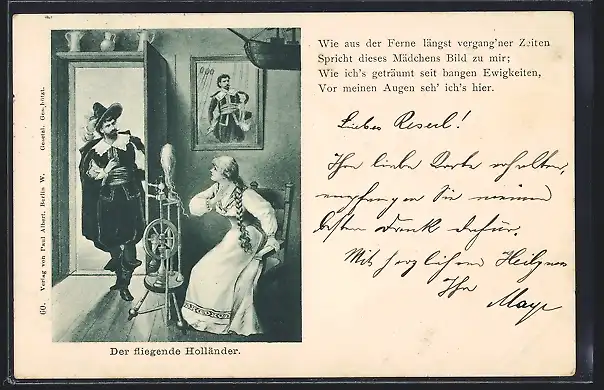 Wie aus der Ferne längst vergang'ner Zeiten
Spricht dieses Mädchens Bild zu mir;
Wie ich's geträumt seit bangen Ewigkeiten,
Vor meinen Augen seh' ich's hier.
Liebes Reserl!
Ihre liebe Karte erhalten,
empfangen Sie meinen
besten Dank dafür.
Mit herzlichen
Ihr
60. Verlag von Paul Albert, Berlin W. Gesetzl. Geschützt.
Der fliegende Holländer.